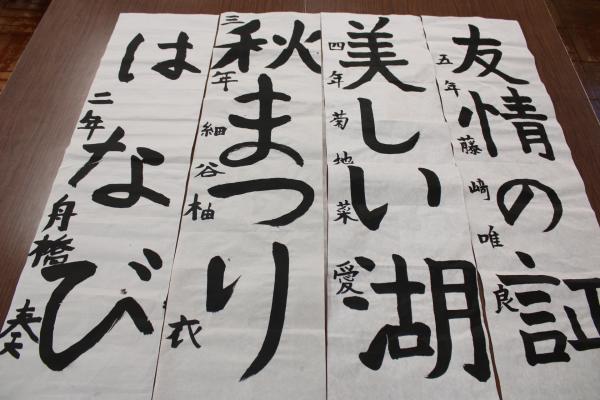 友情の証
五年 藤崎唯良
美しい湖
四年 菊地菜愛
秋まつり
三年 細谷柚衣
はなび
二年 舟橋